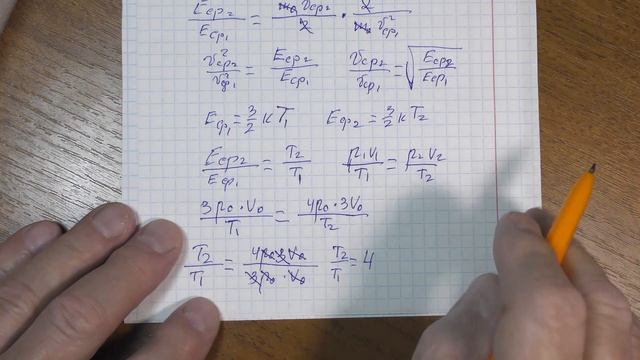 Eср₂/Eср₁ = m₀ v²ср₂/2 · 2/m₀ v²ср₁
v²ср₂/v²ср₁ = Eср₂/Eср₁   vср₂/vср₁ = √(Eср₂/Eср₁)
Eср₁ = 3/2 кT₁   Eср₂ = 3/2 кT₂
Eср₂/Eср₁ = T₂/T₁   p₁V₁/T₁ = p₂V₂/T₂
3p₀·V₀/T₁ = 4p₀·3V₀/T₂
T₂/T₁ = 4p₀3V₀/3p₀·V₀   T₂/T₁ = 4